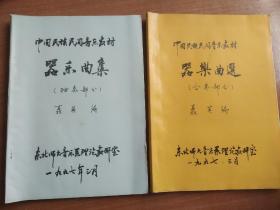 中国民族民间音乐教材
器乐曲集
(独奏部分)
聂英编
东北师大音乐系理论教研室
一九九七年二月
中国民族民间音乐教材
器樂曲選
(合奏部分)
聂英编
东北师大音乐系理论教研室
一九九七·二月